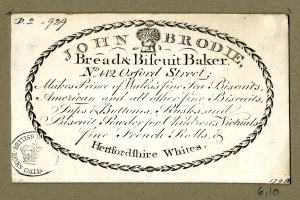 D.2-929
JOHN BRODIE,
Bread & Biscuit Baker,
No. 442 Oxford Street;
Makes Prince of Wales's fine Tea Biscuits,
American and all other fine Biscuits,
Tops & Bottoms, Rusks, and
Biscuit Powder for Children's Victuals,
fine French Rolls, &
Hertfordshire Whites.
6,10